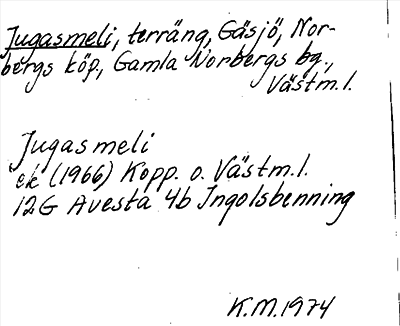 Jugasmeli, terräng, Gäsjö, Nor-
bergs köp., Gamla Norbergs bg.,
Västm.l.
Jugasmeli
ek (1966) Kopp. o. Västm.l.
12G Avesta 4b Ingolsbenning
K.M. 1974